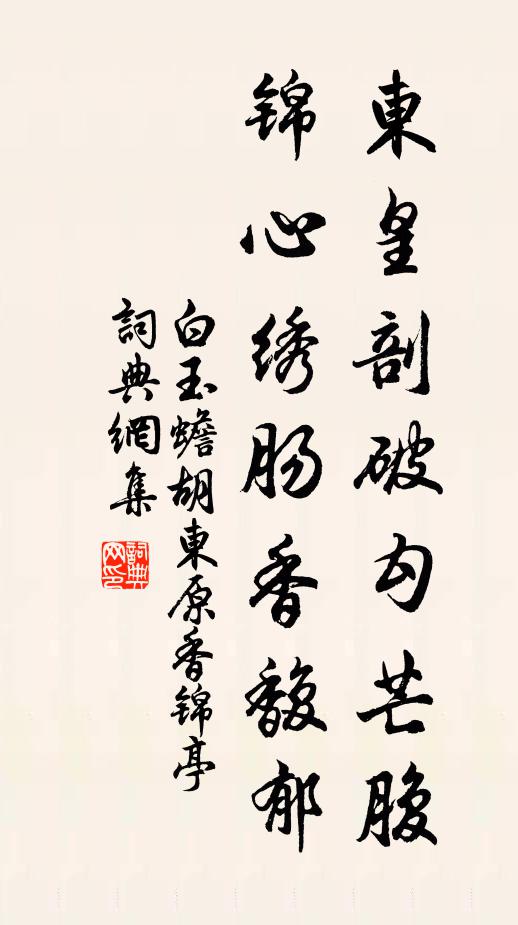 東皇剖破勾芒腹
锦心绣肠香馥郁
白玉蟾胡東原香锦亭
詞典網集
詞典网印